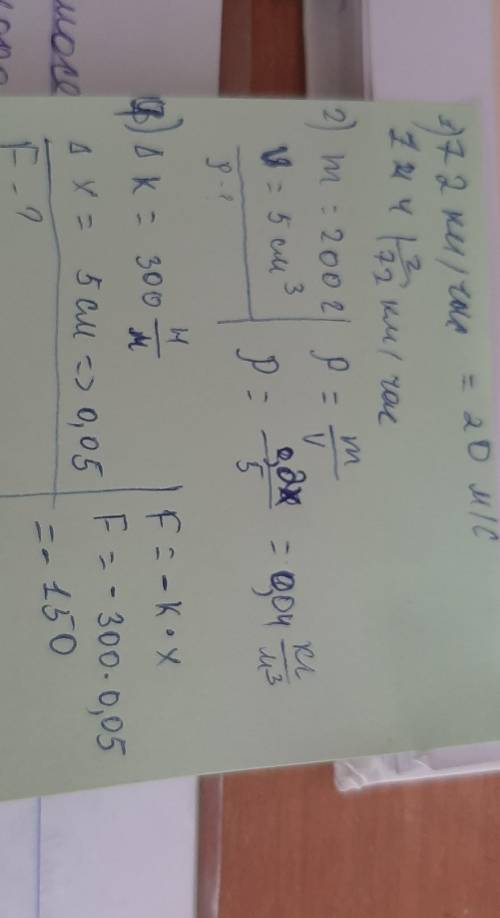 1) 72 км/час = 20 м/с
72 км/час
2) m = 200 г
V = 5 см³
ρ - ?
ρ = m/V
ρ = 0,2/5 = 0,04 кг/м³
Δ K = 300 Н/м
Δ x = 5 см => 0,05
F - ?
F = - K · x
F = - 300 · 0,05
= - 150